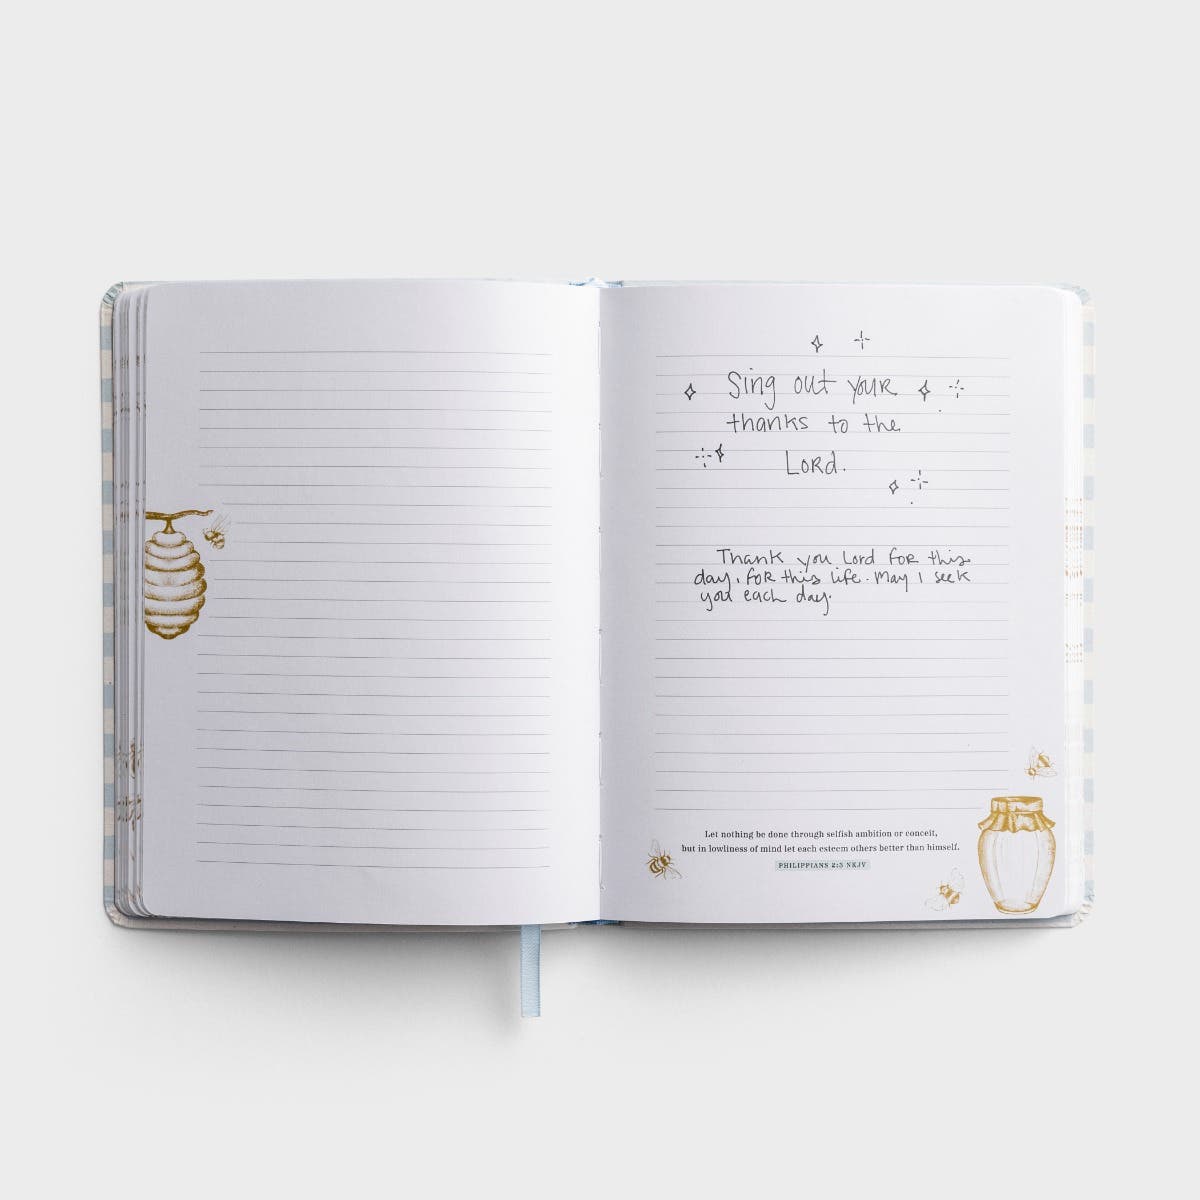 Sing out your
thanks to the
Lord.
Thank you Lord for this
day, for this life. May I seek
you each day.
Let nothing be done through selfish ambition or conceit,
but in lowliness of mind let each esteem others better than himself.
PHILIPPIANS 2:3 NKJV